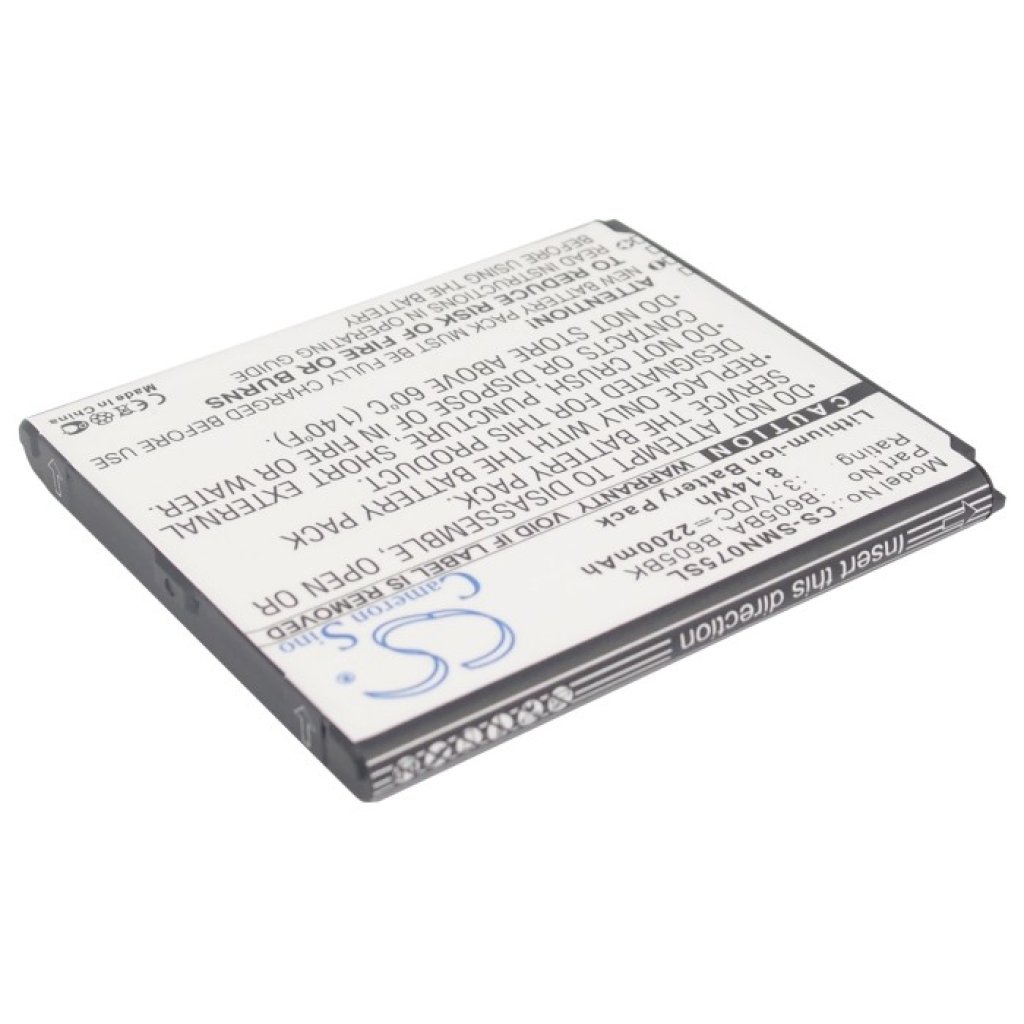 Cameron Sino
CS
Model No.: CS-SMN075SL
Part No.: B605BA, B605BK
Rating: 3.7VDC 2200mAh
8.14Wh
Lithium-ion Battery Pack
CAUTION WARRANTY VOID IF LABEL IS REMOVED
•DO NOT ATTEMPT TO DISASSEMBLE, OPEN OR
SERVICE BATTERY PACK
•REPLACE ONLY WITH THE BATTERY
DESIGNATED FOR THE PRODUCT.
•DO NOT CRUSH, PUNCTURE, SHORT EXTERNAL
CONTACTS OR DISPOSE OF IN FIRE OR WATER.
•DO NOT STORE ABOVE 60°C (140°F).
ATTENTION!
NEW BATTERY PACK MUST BE FULLY CHARGED BEFORE USE
TO REDUCE RISK OF FIRE OR BURNS
READ INSTRUCTIONS IN OPERATING GUIDE
BEFORE USING THE BATTERY
CE
Made in China
Insert this direction